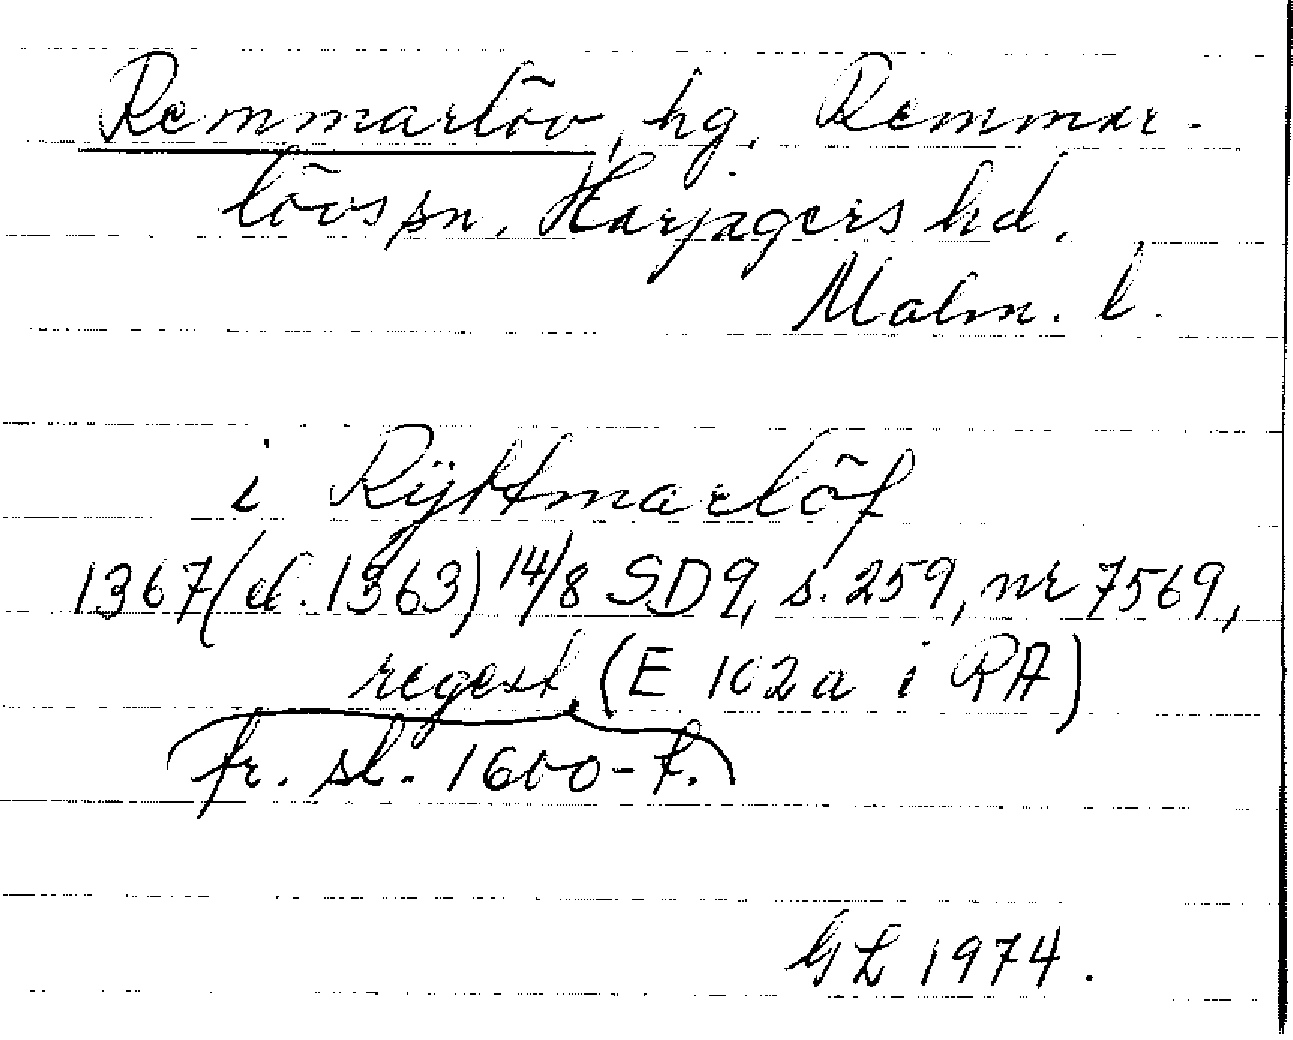 Remmarlöv, hg, Remmar-
lövs sn, Harjagers hd.
Malm. l.
i Rÿttmarlöf
1367 (el. 1363) 14/8 SD 9, s. 259, nr 7569,
regest (E 102a i RA)
fr. sl. 1600-t.
GL 1974.